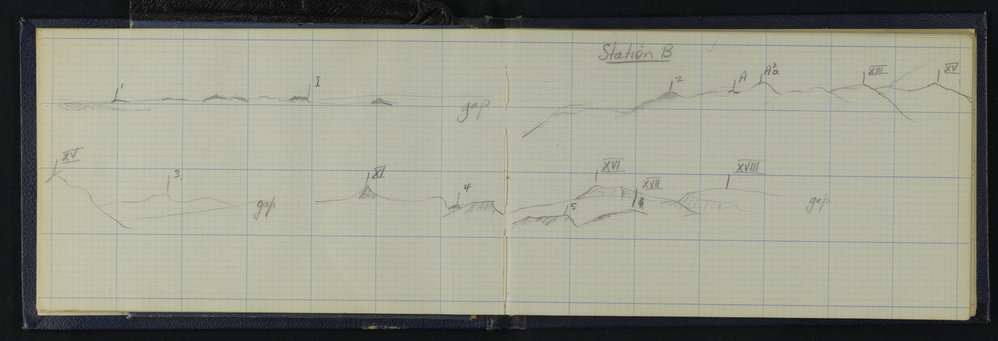 Station B
1 I gap
2 A A²a XIII XV
XV 3 gap XI 4
5 XVI XVII XVIII gap